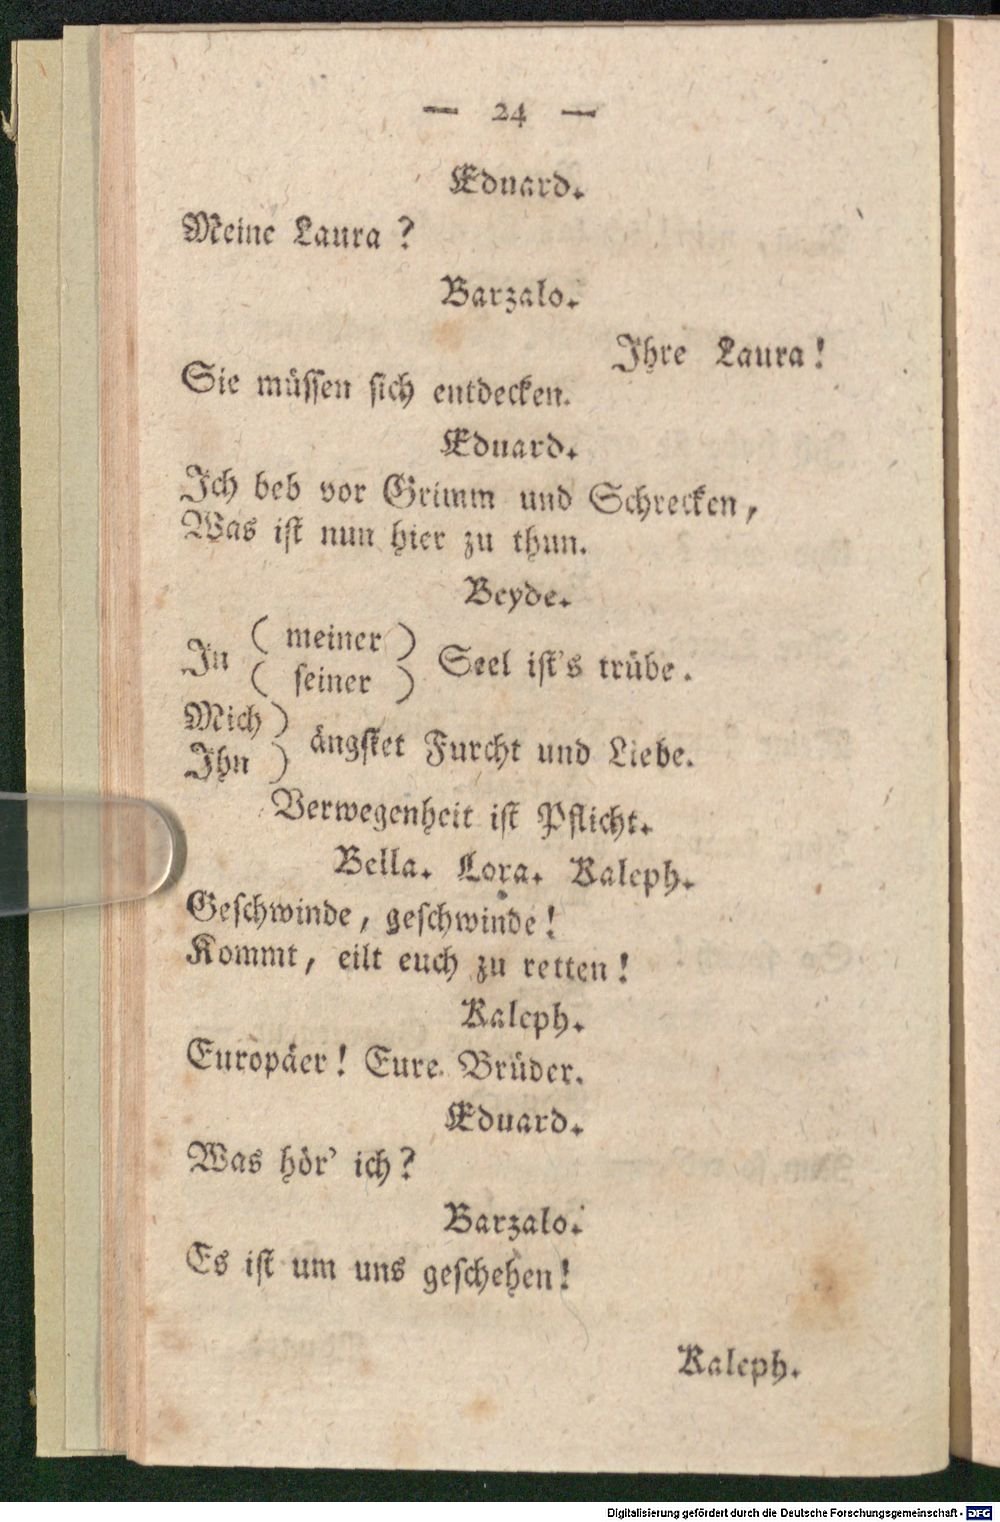 — 24 —
Eduard.
Meine Laura?
Barzalo.
Ihre Laura!
Sie müssen sich entdecken.
Eduard.
Ich beb vor Grimm und Schrecken,
Was ist nun hier zu thun.
Beyde.
In ( meiner ) ( seiner ) Seel ist's trübe.
Mich ) Ihn ) ängstet Furcht und Liebe.
Verwegenheit ist Pflicht.
Bella. Lora. Kaleph.
Geschwinde, geschwinde!
Kommt, eilt euch zu retten!
Kaleph.
Europäer! Eure Brüder.
Eduard.
Was hör' ich?
Barzalo.
Es ist um uns geschehen!
Kaleph.
Digitalisierung gefördert durch die Deutsche Forschungsgemeinschaft - DFG